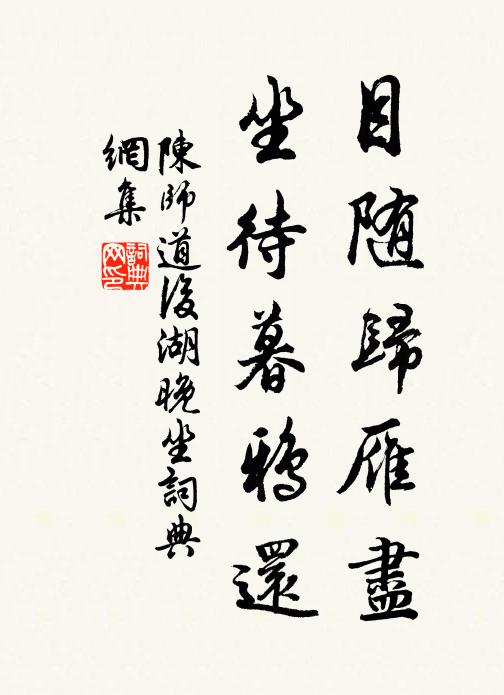 目随歸雁盡
坐待暮鴉還
陳師道後湖晚坐詞典
網集
詞典
网印